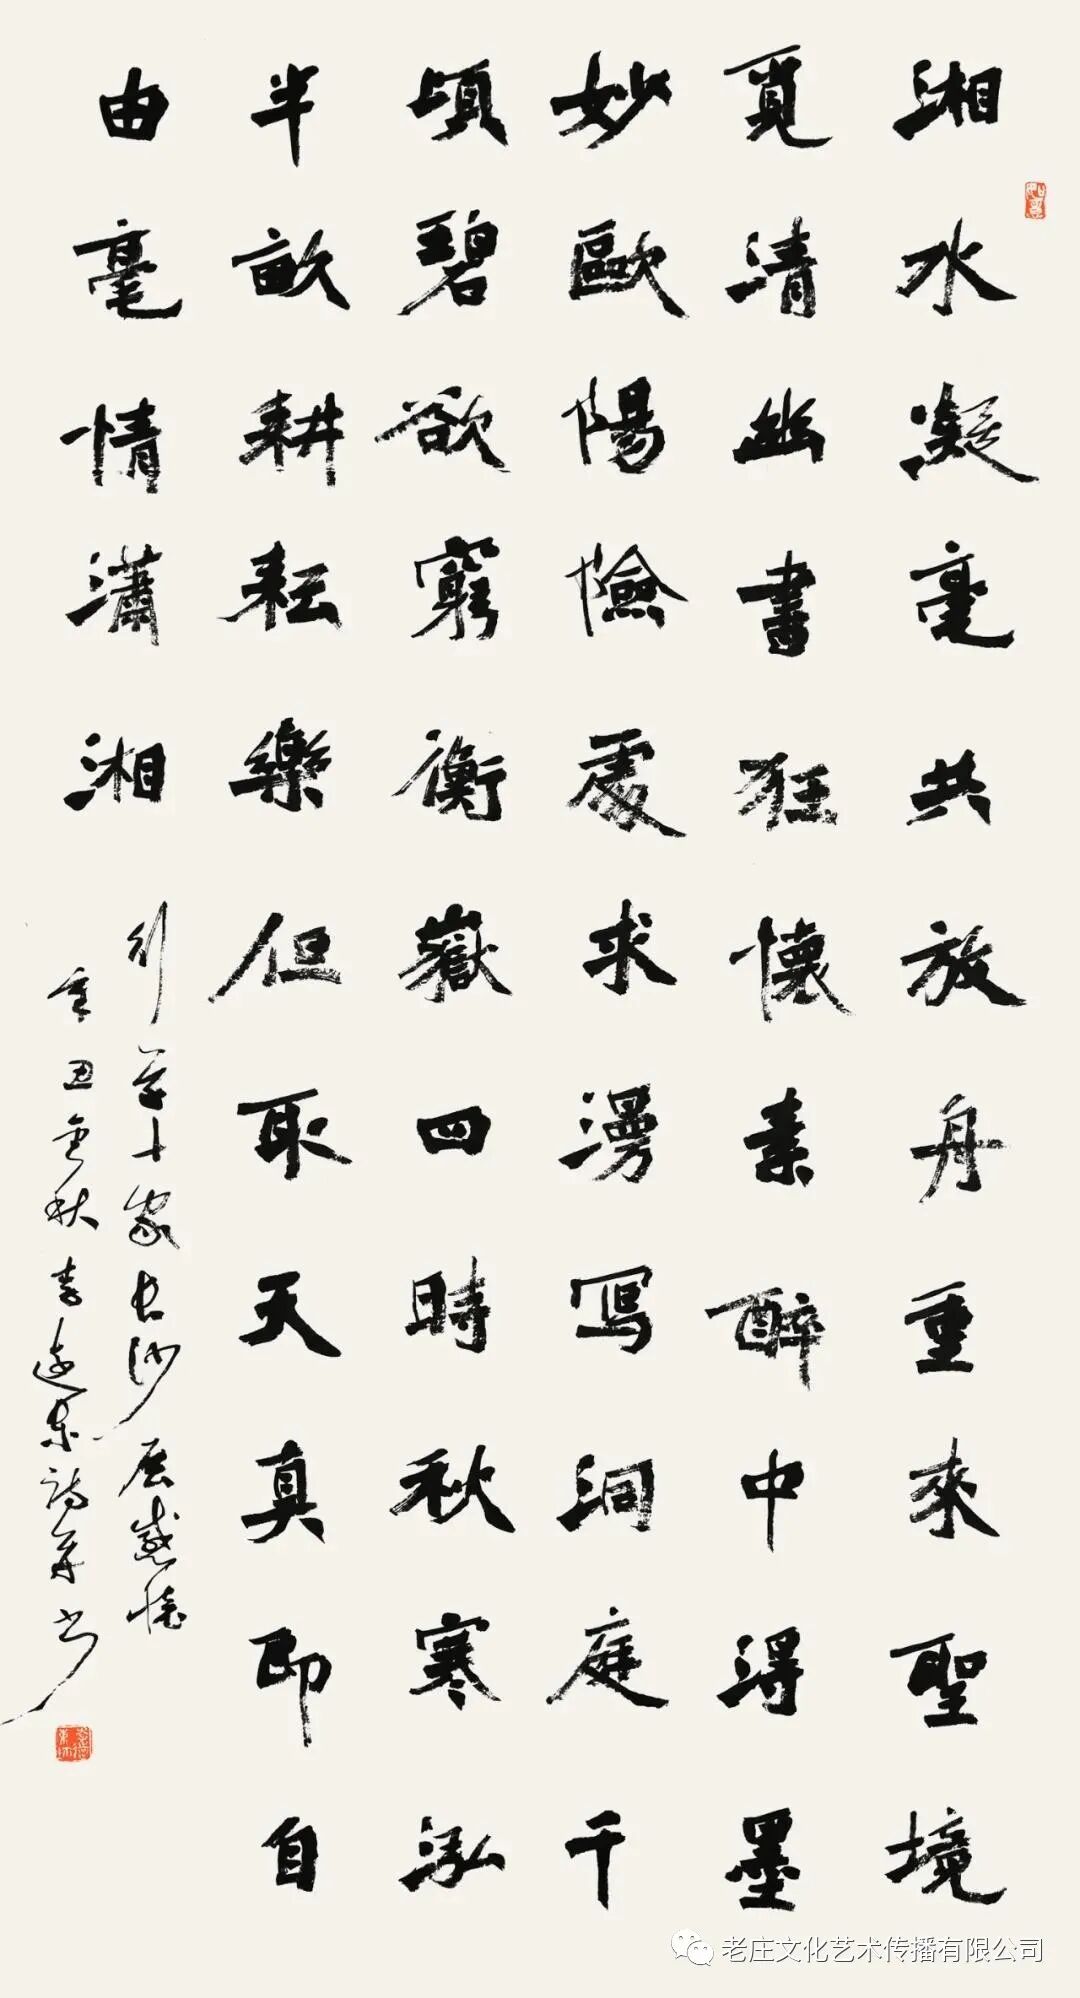 湘水凝毫共放舟重來聖境
覓清幽書狂懷素醉中得墨
妙歐陽險處求漫寫洞庭千
頃碧欲窮衡嶽四時秋寒泓
半畝耕耘樂但取天真即自
由毫情瀟湘
行草十家長沙展感懷
辛丑金秋李遠東詩并書
老庄文化艺术传播有限公司